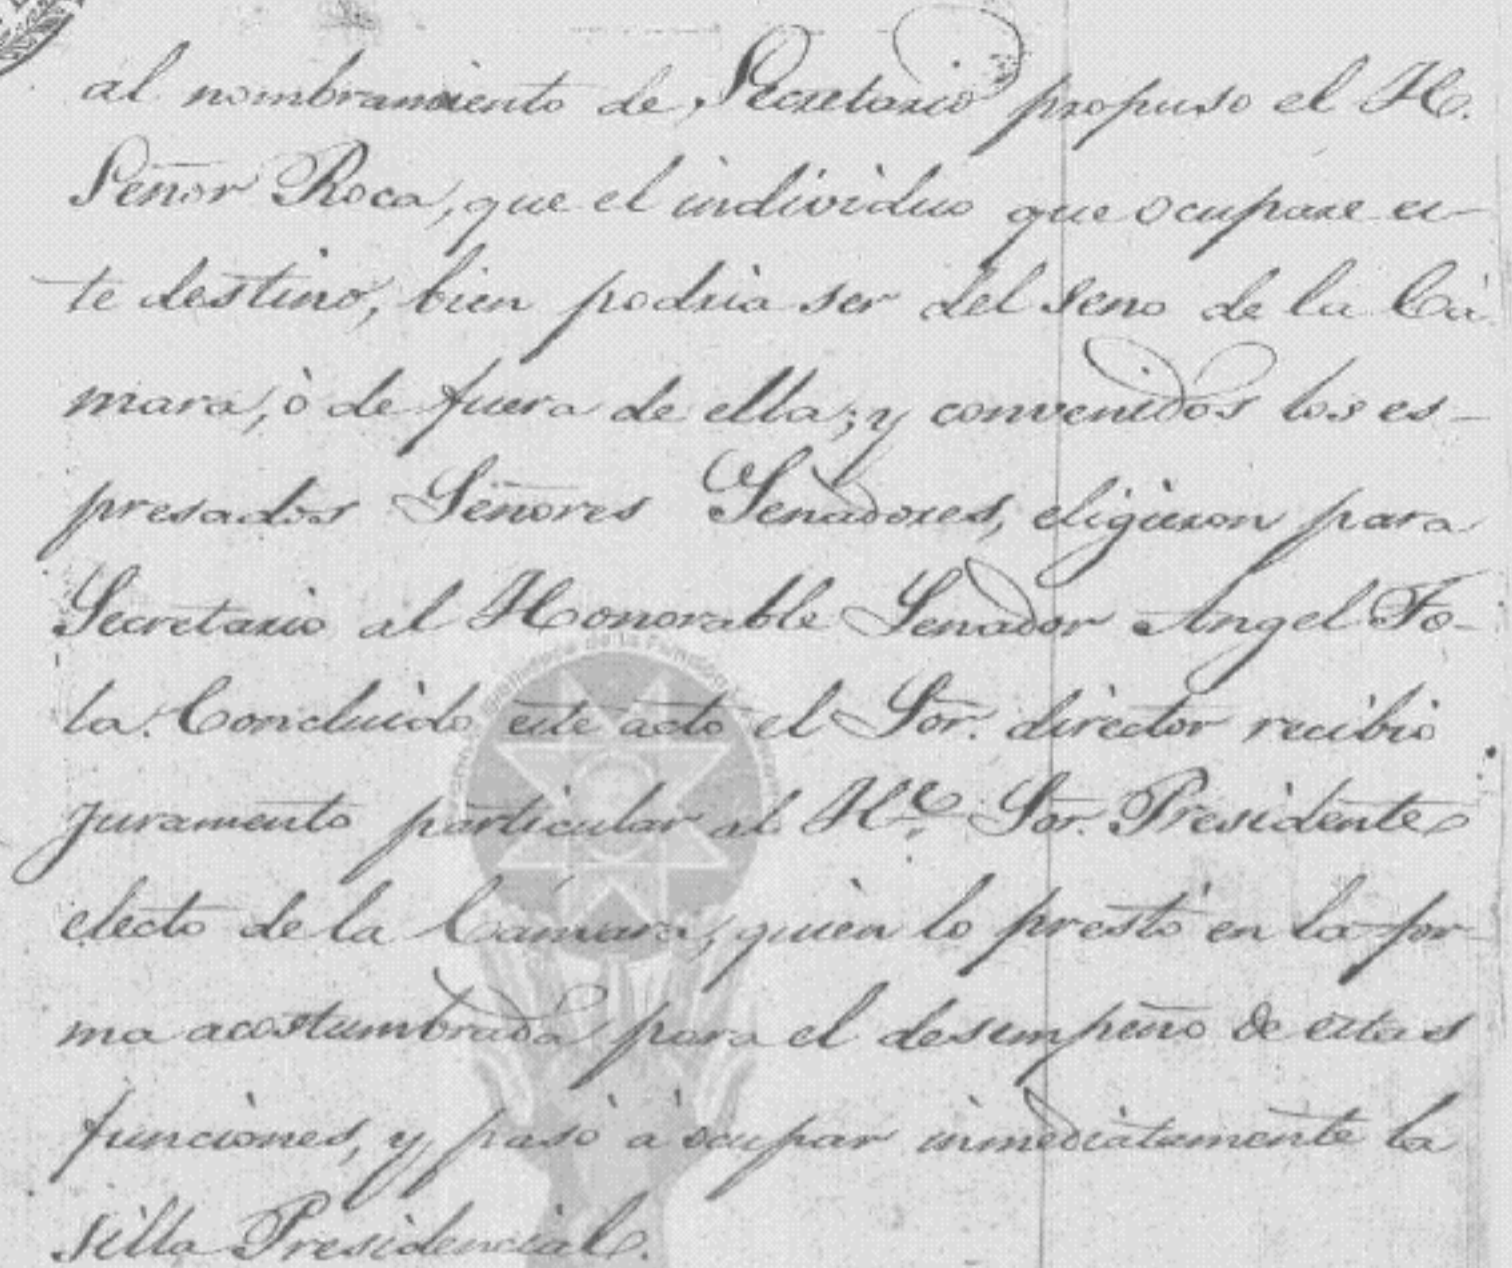 al nombramiento de Secretario propuso el H.
Señor Roca, que el individuo que ocupare es-
te destino, bien podria ser del seno de la Cá-
mara, ò de fuera de ella; y convenidos los es-
presados Señores Senadores, eligieron para
Secretario al Honorable Senador Angel To-
la. Concluido este acto el Sor. director recibio
juramento particular al He. Sor. Presidente
electo de la Cámara, quien lo prestó en la for-
ma acostumbrada para el desempeño de estas
funciones, y pasó à ocupar inmediatamente la
silla Presidencial.